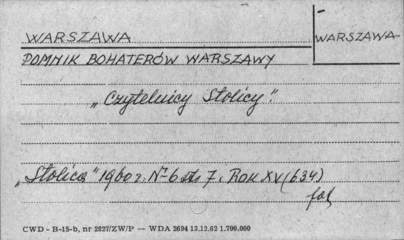 WARSZAWA
WARSZAWA
POMNIK BOHATERÓW WARSZAWY
„Czytelnicy Stolicy".
„Stolica" 1960 r. Nr 6 str 7. Rok XV (634)
fot
CWD - B-15-b, nr 2827/ZW/P — WDA 2694 13.12.62 1.700.000